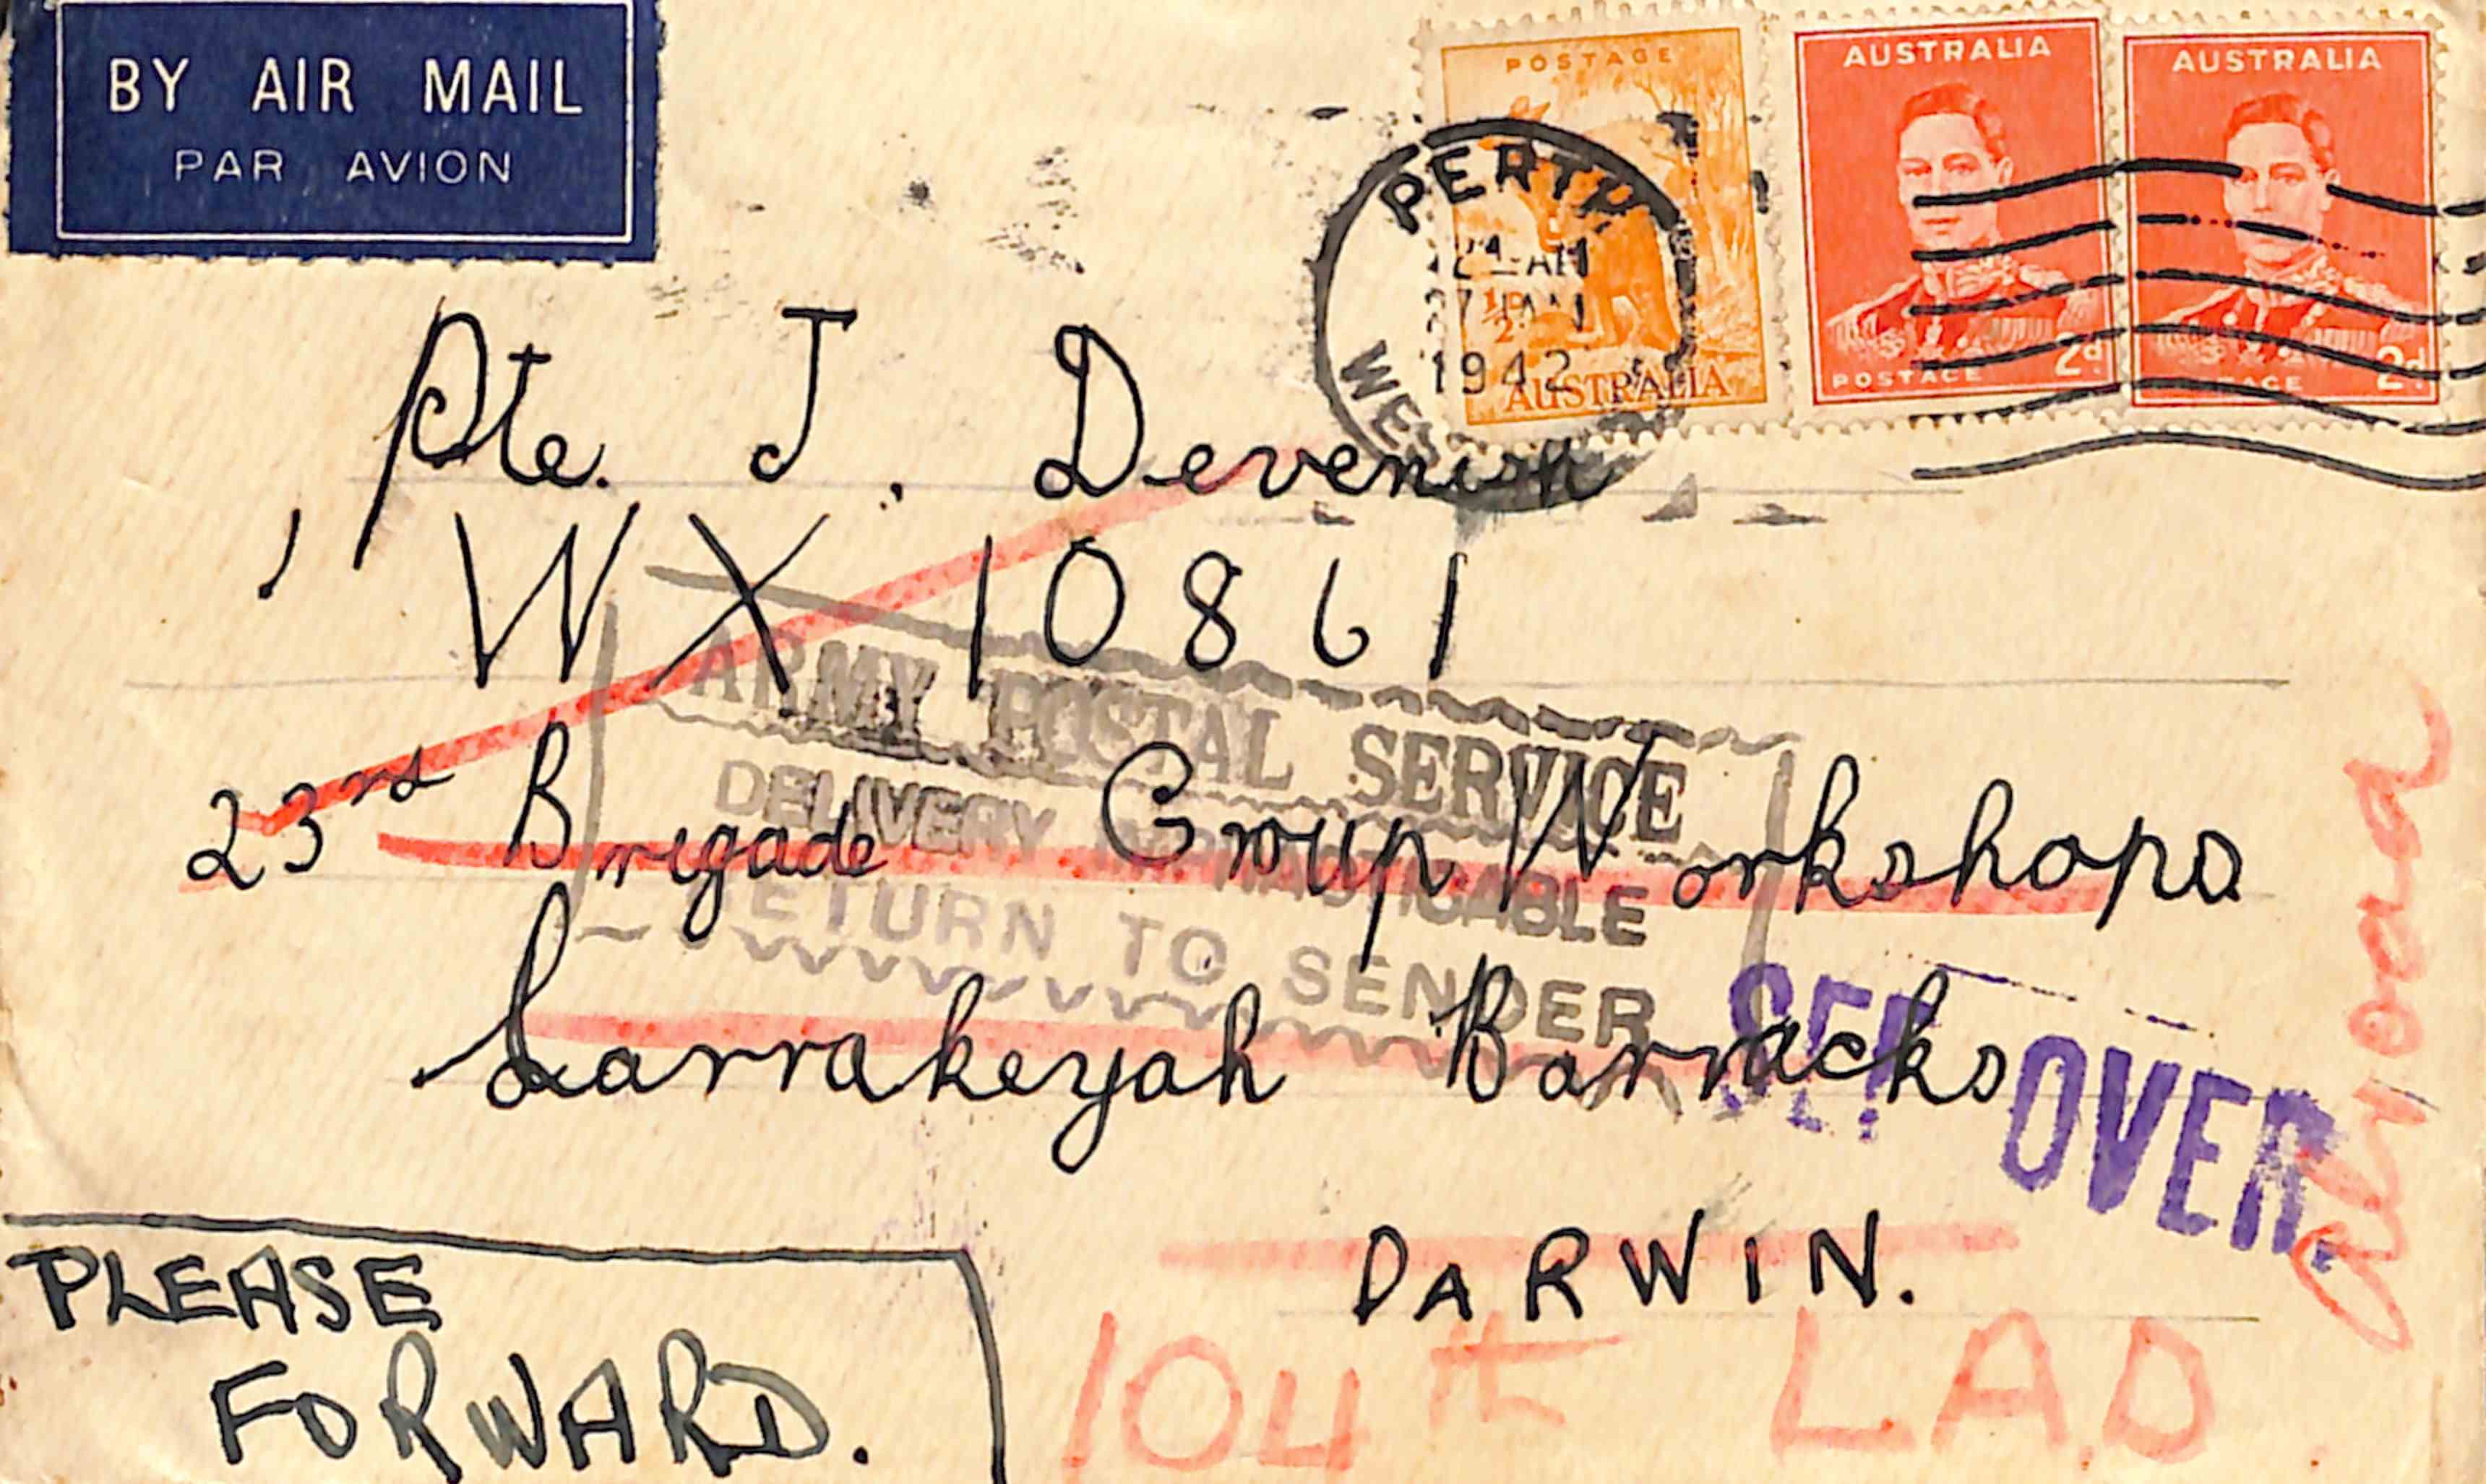 BY AIR MAIL
PAR AVION
POSTAGE
½D
AUSTRALIA
AUSTRALIA
POSTAGE 2d
AUSTRALIA
2d
PERTH
12 - AM
27 JAN
1942
WES
Pte. J. Devenish
WX 10861
23rd Brigade Group Workshops
Larrakeyah Barracks
DARWIN.
ARMY POSTAL SERVICE
DELIVERY IMPRACTICABLE
RETURN TO SENDER
SEE OVER
PLEASE
FORWARD.
104th L.A.D.